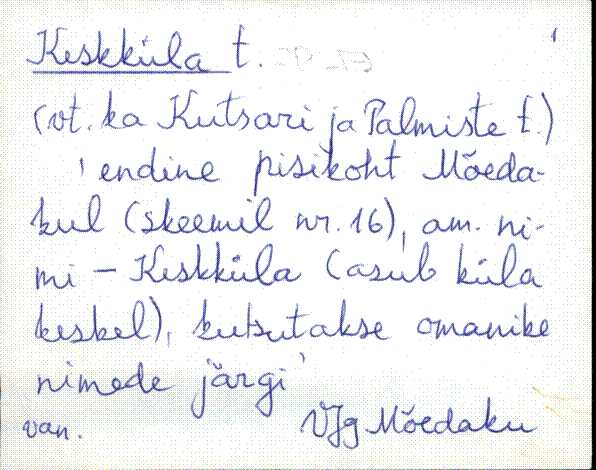 Keskküla t.
(vt. ka Kutsari ja Palmiste t.)
' endine pisikoht Mõeda-
kul (skeemil nr. 16), am. ni-
mi – Keskküla (asub küla
keskel), kutsutakse omanike
nimede järgi '
van. VJg Mõedaku